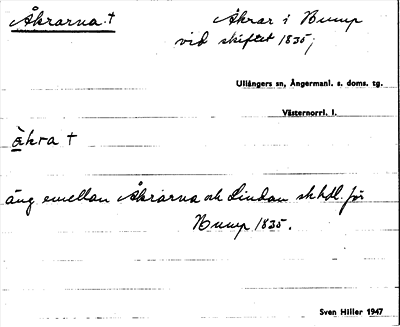 Åkrarna. †
Åkrar i Bump
vid skiftet 1835;
Ullångers sn, Ångermanl. s. doms. tg.
Västernorrl. l.
åkra †
äng emellan Åkrarna och Lindan skhdl. för
Bump 1835.
Sven Hiller 1947